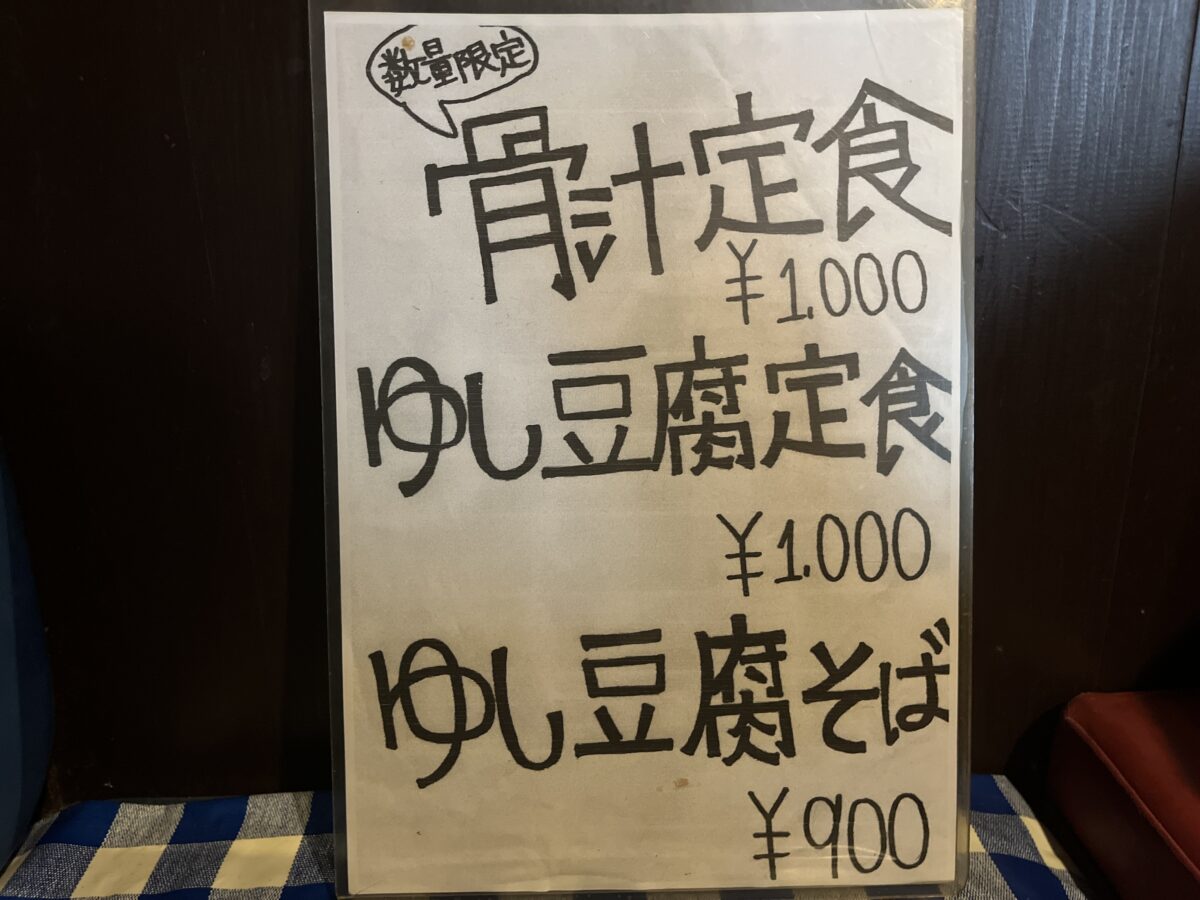 数量限定
骨汁定食
¥1.000
ゆし豆腐定食
¥1.000
ゆし豆腐そば
¥900